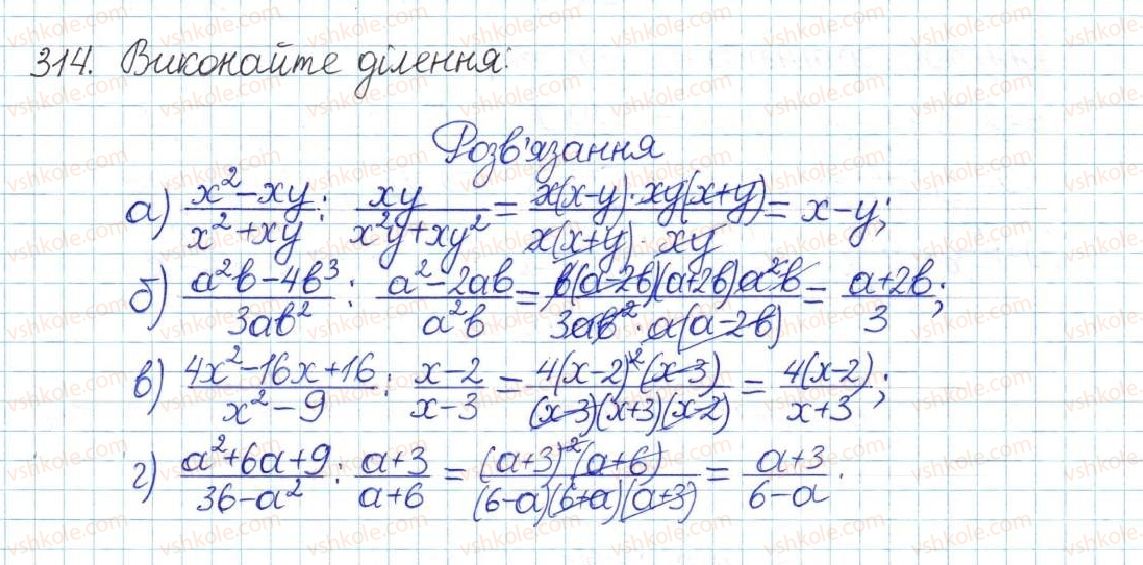 314. Виконайте ділення:
Розв'язання
а) (x²-xy)/(x²+xy) : xy/(x²y+xy²) = (x(x-y)·xy(x+y))/(x(x+y)·xy) = x-y;
б) (a²b-4b³)/(3ab²) : (a²-2ab)/(a²b) = (b(a-2b)(a+2b)a²b)/(3ab²·a(a-2b)) = (a+2b)/3;
в) (4x²-16x+16)/(x²-9) : (x-2)/(x-3) = (4(x-2)²(x-3))/((x-3)(x+3)(x-2)) = (4(x-2))/(x+3);
г) (a²+6a+9)/(36-a²) : (a+3)/(a+6) = ((a+3)²(a+6))/((6-a)(6+a)(a+3)) = (a+3)/(6-a).
vshkole.com